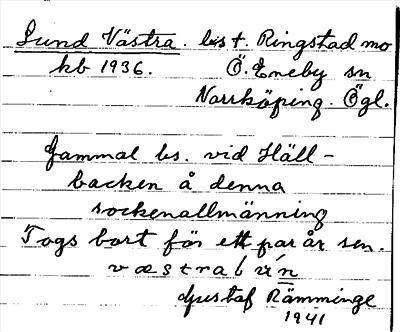 Lund Västra. bs t. Ringstad mo
kb 1936. Ö. Eneby sn
Norrköping. Ögl.
Gammal bs. vid Häll-
backen å denna
sockenallmänning
Togs bort för ett par år sen.
Gustaf Rämminge
1941